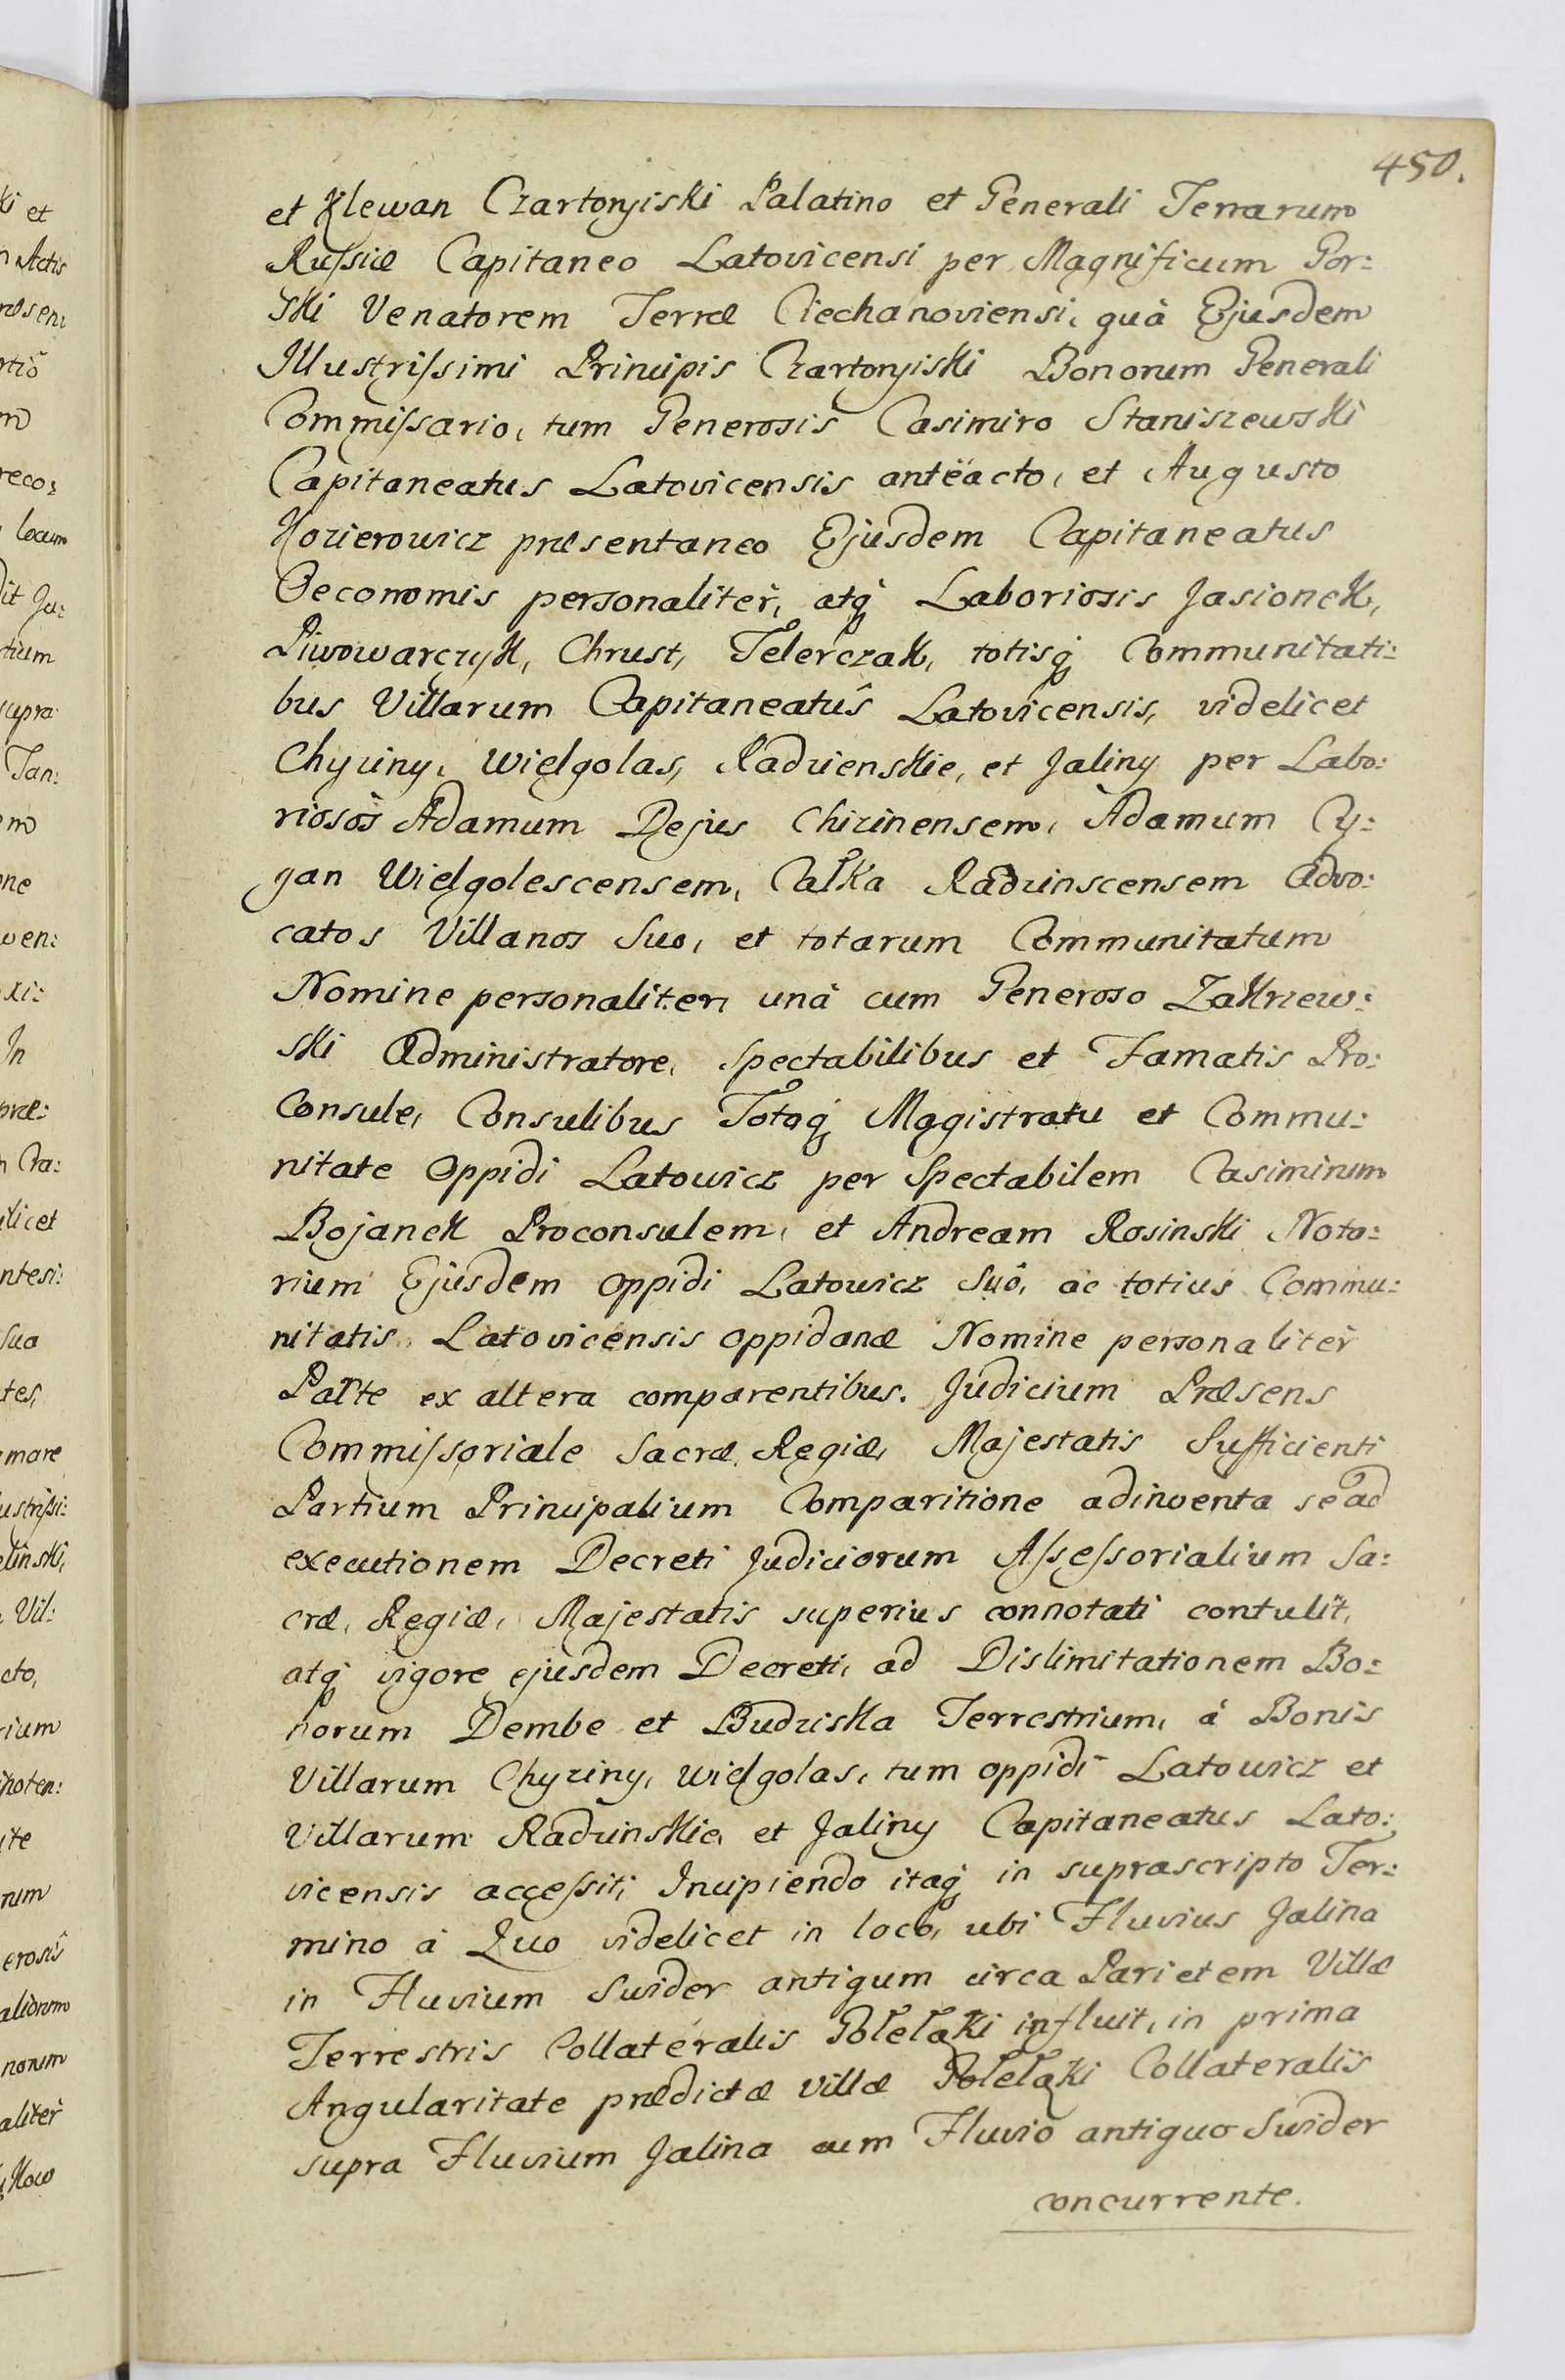 450.
et Klewan Czartoryiski Palatino et Generali Terrarum
Rußiæ Capitaneo Latovicensi per Magnificum Gor:
ski Venatorem Terræ Ciechanoviensi, quà Ejusdem
Illustrißimi Principis Czartoryiski Bonorum Generali
Commißario, tum Generosis Casimiro Staniszewski
Capitaneatus Latovicensis antëacto, et Augusto
Kozierowicz præsentaneo Ejusdem Capitaneatus
Oeconomis personalitèr, atq́ Laboriosis Jasionek,
Piwowarczyk, Chrust, Telerczak, totisq́ Communitati:
bus Villarum Capitaneatûs Latovicensis, videlicet
Chyziny, Wielgolas, Radzienskie, et Jaliny per Labo:
riosos Adamum Dejus Chizinensem, Adamum Cy:
gan Wielgolescensem, Całka Radzinscensem Advo:
catos Villanos Suo, et totarum Communitatum
Nomine personaliter, unà cum Generoso Zakrzew:
ski Administratore, Spectabilibus et Famatis Pro:
Consule, Consulibus Totoq́ Magistratu et Commu:
nitate Oppidi Latowicz per Spectabilem Casimirum
Bojanek Proconsulem, et Andream Rosinski Nota:
rium Ejusdem Oppidi Latowicz Suô, ac totius Commu:
nitatis Latovicensis Oppidanæ Nomine personalitèr
Parte ex altera comparentibus. Judicium Præsens
Commißoriale Sacræ Regiæ Majestatis Sufficienti
Partium Principalium Comparitione adinventa se ad
executionem Decreti Judiciorum Aßeßorialium Sa:
cræ, Regiæ, Majestatis superius connotati contulit,
atq́ vigore ejusdem Decreti, ad Dislimitationem Bo:
norum Dembe et Budziska Terrestrium, à Bonis
Villarum Chyziny, Wielgolas, tum Oppidi Latowicz et
Villarum Radzinskie, et Jaliny Capitaneatus Lato:
vicensis acceßit; Incipiendo itaq́ in suprascripto Ter:
mino à Quo videlicet in loco, ubi Fluvius Jalina
in Fluvium Swider antiquum circa Parietem Villæ
Terrestris Collateralis Gołełąki influit, in prima
Angularitate prædictæ Villæ Gołełąki Collateralis
supra Fluvium Jalina cum Fluvio antiquo Swider
concurrente.
ki et
Actis
tiò
m
locum
tium
supra
Tan:
ne
xi:
In
præ:
licet
ntesi:
sua
tes,
mare
Vil:
cto,
rium
ite
rum
norum
alitèr